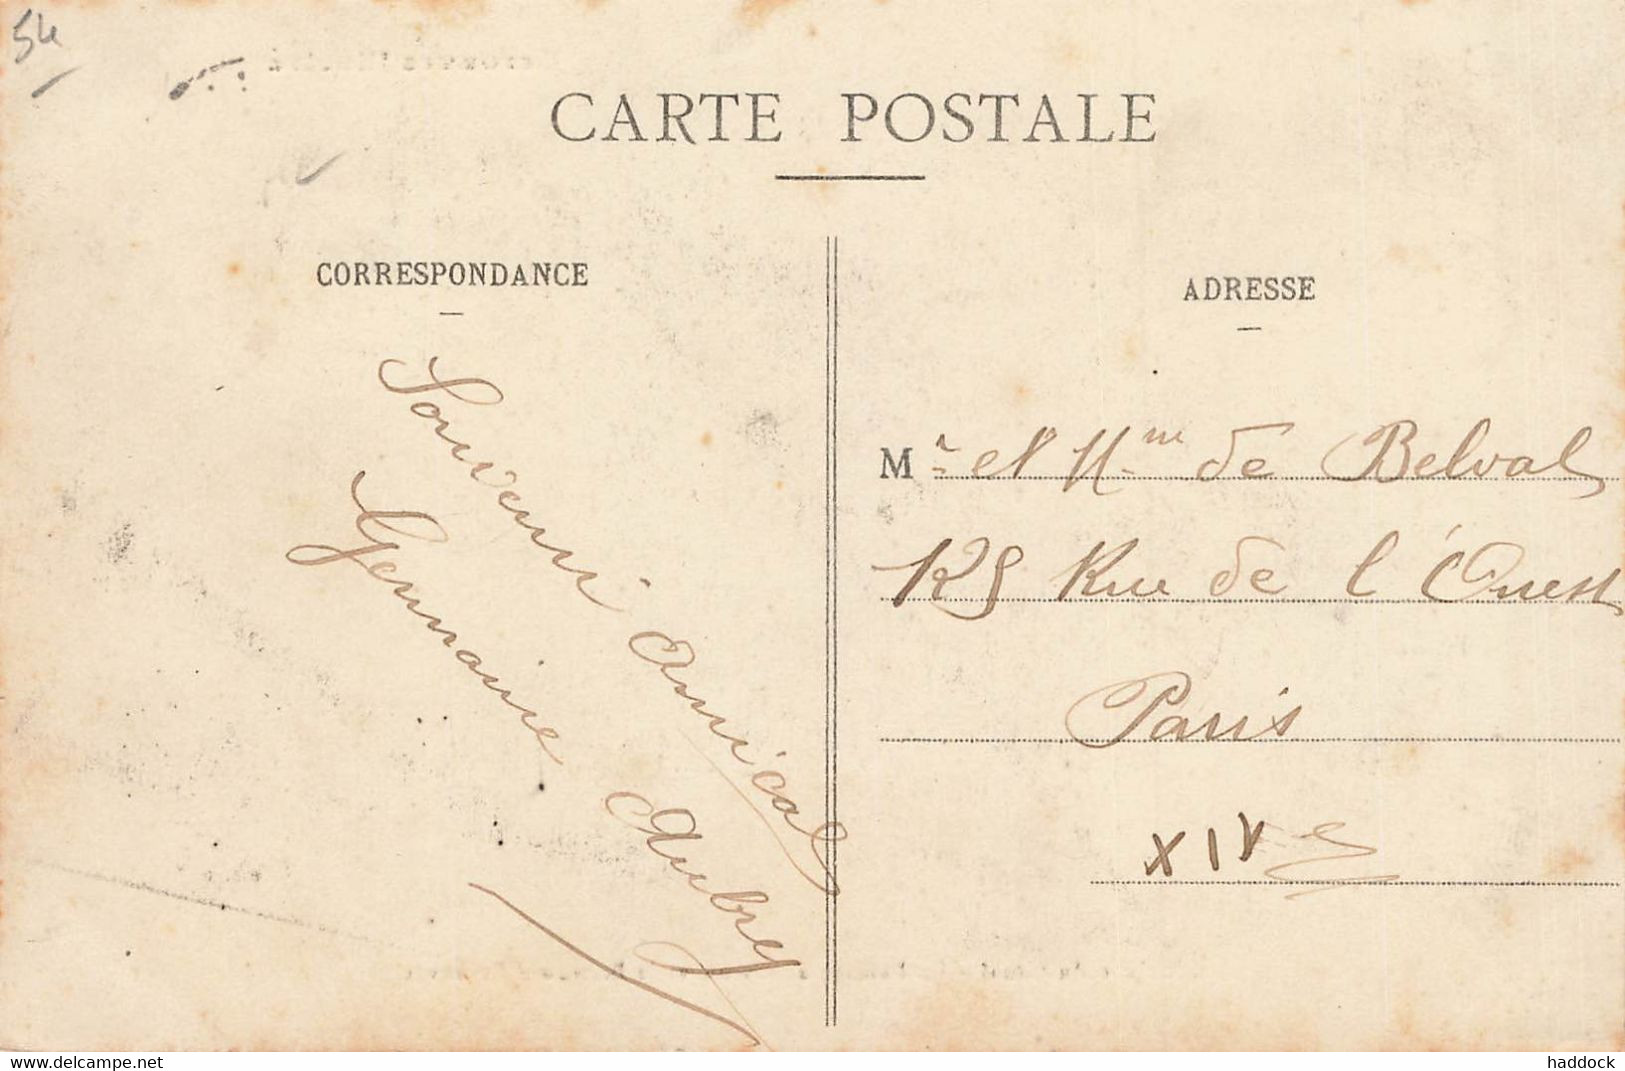 54
CARTE POSTALE
CORRESPONDANCE
Souvenir amical
Germaine Aubry
ADRESSE
Mr et Mme de Belval
125 Rue de l'Ouest
Paris
XIVe
www.delcampe.net
haddock